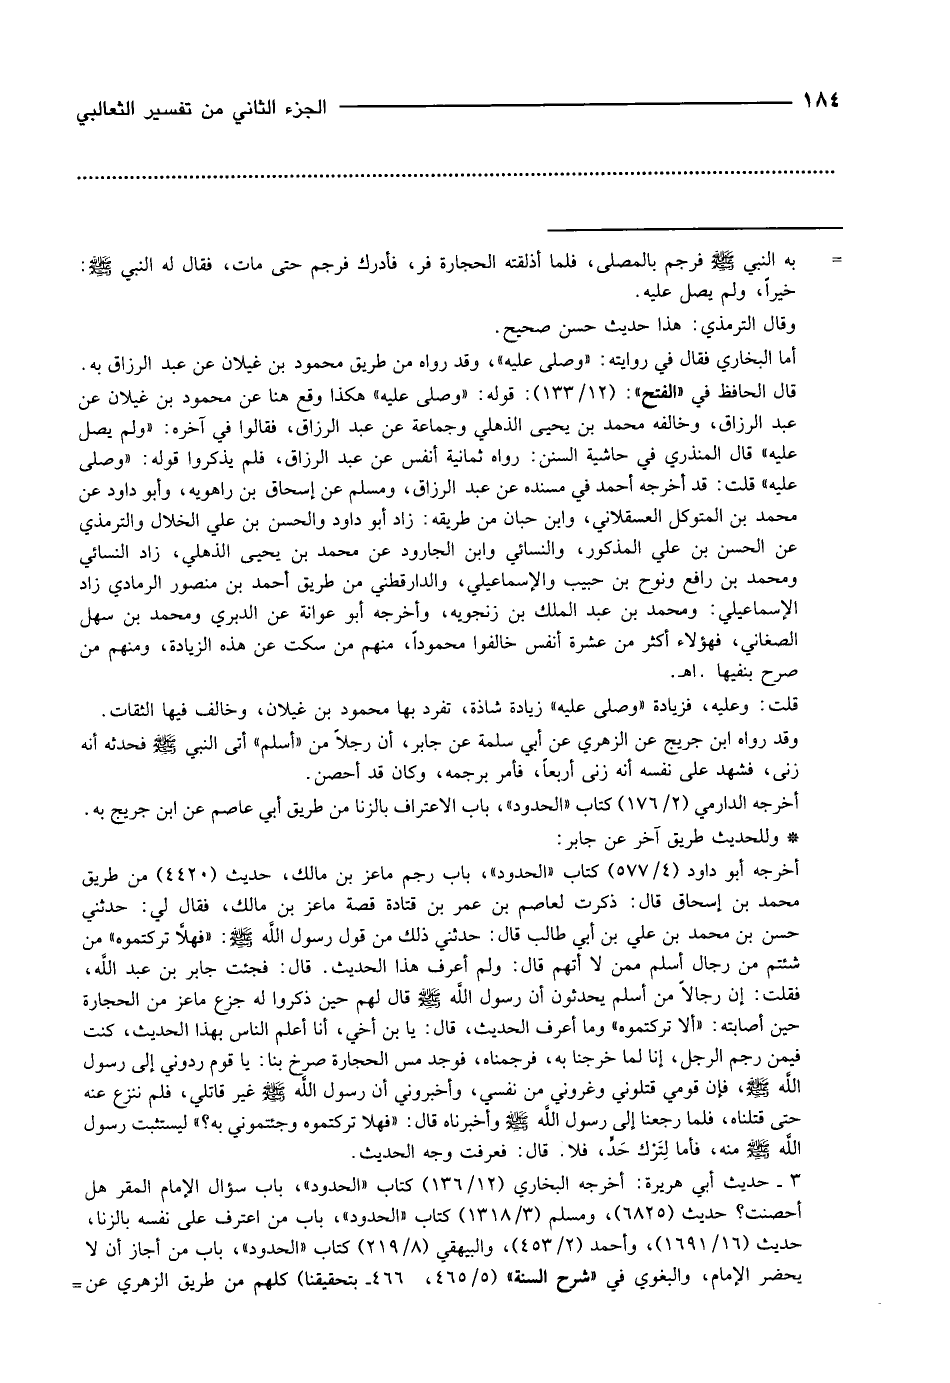 ١٨٤ ــــــــــــــــــــ الجزء الثاني من تفسير الثعالبي
= به النبي ﷺ فرجم بالمصلى، فلما أذلقته الحجارة فر، فأدرك فرجم حتى مات، فقال له النبي ﷺ:
خيراً، ولم يصل عليه.
وقال الترمذي: هذا حديث حسن صحيح.
أما البخاري فقال في روايته: «وصلى عليه»، وقد رواه من طريق محمود بن غيلان عن عبد الرزاق به.
قال الحافظ في «الفتح»: (١٢/ ١٣٣): قوله: «وصلى عليه» هكذا وقع هنا عن محمود بن غيلان عن
عبد الرزاق، وخالفه محمد بن يحيى الذهلي وجماعة عن عبد الرزاق، فقالوا في آخره: «ولم يصل
عليه» قال المنذري في حاشية السنن: رواه ثمانية أنفس عن عبد الرزاق، فلم يذكروا قوله: «وصلى
عليه» قلت: قد أخرجه أحمد في مسنده عن عبد الرزاق، ومسلم عن إسحاق بن راهويه، وأبو داود عن
محمد بن المتوكل العسقلاني، وابن حبان من طريقه: زاد أبو داود والحسن بن علي الخلال والترمذي
عن الحسن بن علي المذكور، والنسائي وابن الجارود عن محمد بن يحيى الذهلي، زاد النسائي
ومحمد بن رافع ونوح بن حبيب والإسماعيلي، والدارقطني من طريق أحمد بن منصور الرمادي زاد
الإسماعيلي: ومحمد بن عبد الملك بن زنجويه، وأخرجه أبو عوانة عن الدبري ومحمد بن سهل
الصغاني، فهؤلاء أكثر من عشرة أنفس خالفوا محموداً، منهم من سكت عن هذه الزيادة، ومنهم من
صرح بنفيها .اهـ.
قلت: وعليه، فزيادة «وصلى عليه» زيادة شاذة، تفرد بها محمود بن غيلان، وخالف فيها الثقات.
وقد رواه ابن جريج عن الزهري عن أبي سلمة عن جابر، أن رجلاً من «أسلم» أتى النبي ﷺ فحدثه أنه
زنى، فشهد على نفسه أنه زنى أربعاً، فأمر برجمه، وكان قد أحصن.
أخرجه الدارمي (٢/ ١٧٦) كتاب «الحدود»، باب الاعتراف بالزنا من طريق أبي عاصم عن ابن جريج به.
* وللحديث طريق آخر عن جابر:
أخرجه أبو داود (٤/ ٥٧٧) كتاب «الحدود»، باب رجم ماعز بن مالك، حديث (٤٤٢٠) من طريق
محمد بن إسحاق قال: ذكرت لعاصم بن عمر بن قتادة قصة ماعز بن مالك، فقال لي: حدثني
حسن بن محمد بن علي بن أبي طالب قال: حدثني ذلك من قول رسول اللَّه ﷺ: «فهلاَّ تركتموه» من
شئتم من رجال أسلم ممن لا أتهم قال: ولم أعرف هذا الحديث. قال: فجئت جابر بن عبد اللَّه،
فقلت: إن رجالاً من أسلم يحدثون أن رسول اللَّه ﷺ قال لهم حين ذكروا له جزع ماعز من الحجارة
حين أصابته: «ألا تركتموه» وما أعرف الحديث، قال: يا بن أخي، أنا أعلم الناس بهذا الحديث، كنت
فيمن رجم الرجل، إنا لما خرجنا به، فرجمناه، فوجد مس الحجارة صرخ بنا: يا قوم ردوني إلى رسول
اللَّه ﷺ، فإن قومي قتلوني وغروني من نفسي، وأخبروني أن رسول اللَّه ﷺ غير قاتلي، فلم ننزع عنه
حتى قتلناه، فلما رجعنا إلى رسول اللَّه ﷺ وأخبرناه قال: «فهلا تركتموه وجئتموني به؟» ليستثبت رسول
اللَّه ﷺ منه، فأما لِتَرْك حَدٍّ، فلا. قال: فعرفت وجه الحديث.
٣ ـ حديث أبي هريرة: أخرجه البخاري (١٢/ ١٣٦) كتاب «الحدود»، باب سؤال الإمام المقر هل
أحصنت؟ حديث (٦٨٢٥)، ومسلم (٣/ ١٣١٨) كتاب «الحدود»، باب من اعترف على نفسه بالزنا،
حديث (١٦/ ١٦٩١)، وأحمد (٢/ ٤٥٣)، والبيهقي (٨/ ٢١٩) كتاب «الحدود»، باب من أجاز أن لا
يحضر الإمام، والبغوي في «شرح السنة» (٥/ ٤٦٥، ٤٦٦ـ بتحقيقنا) كلهم من طريق الزهري عن =